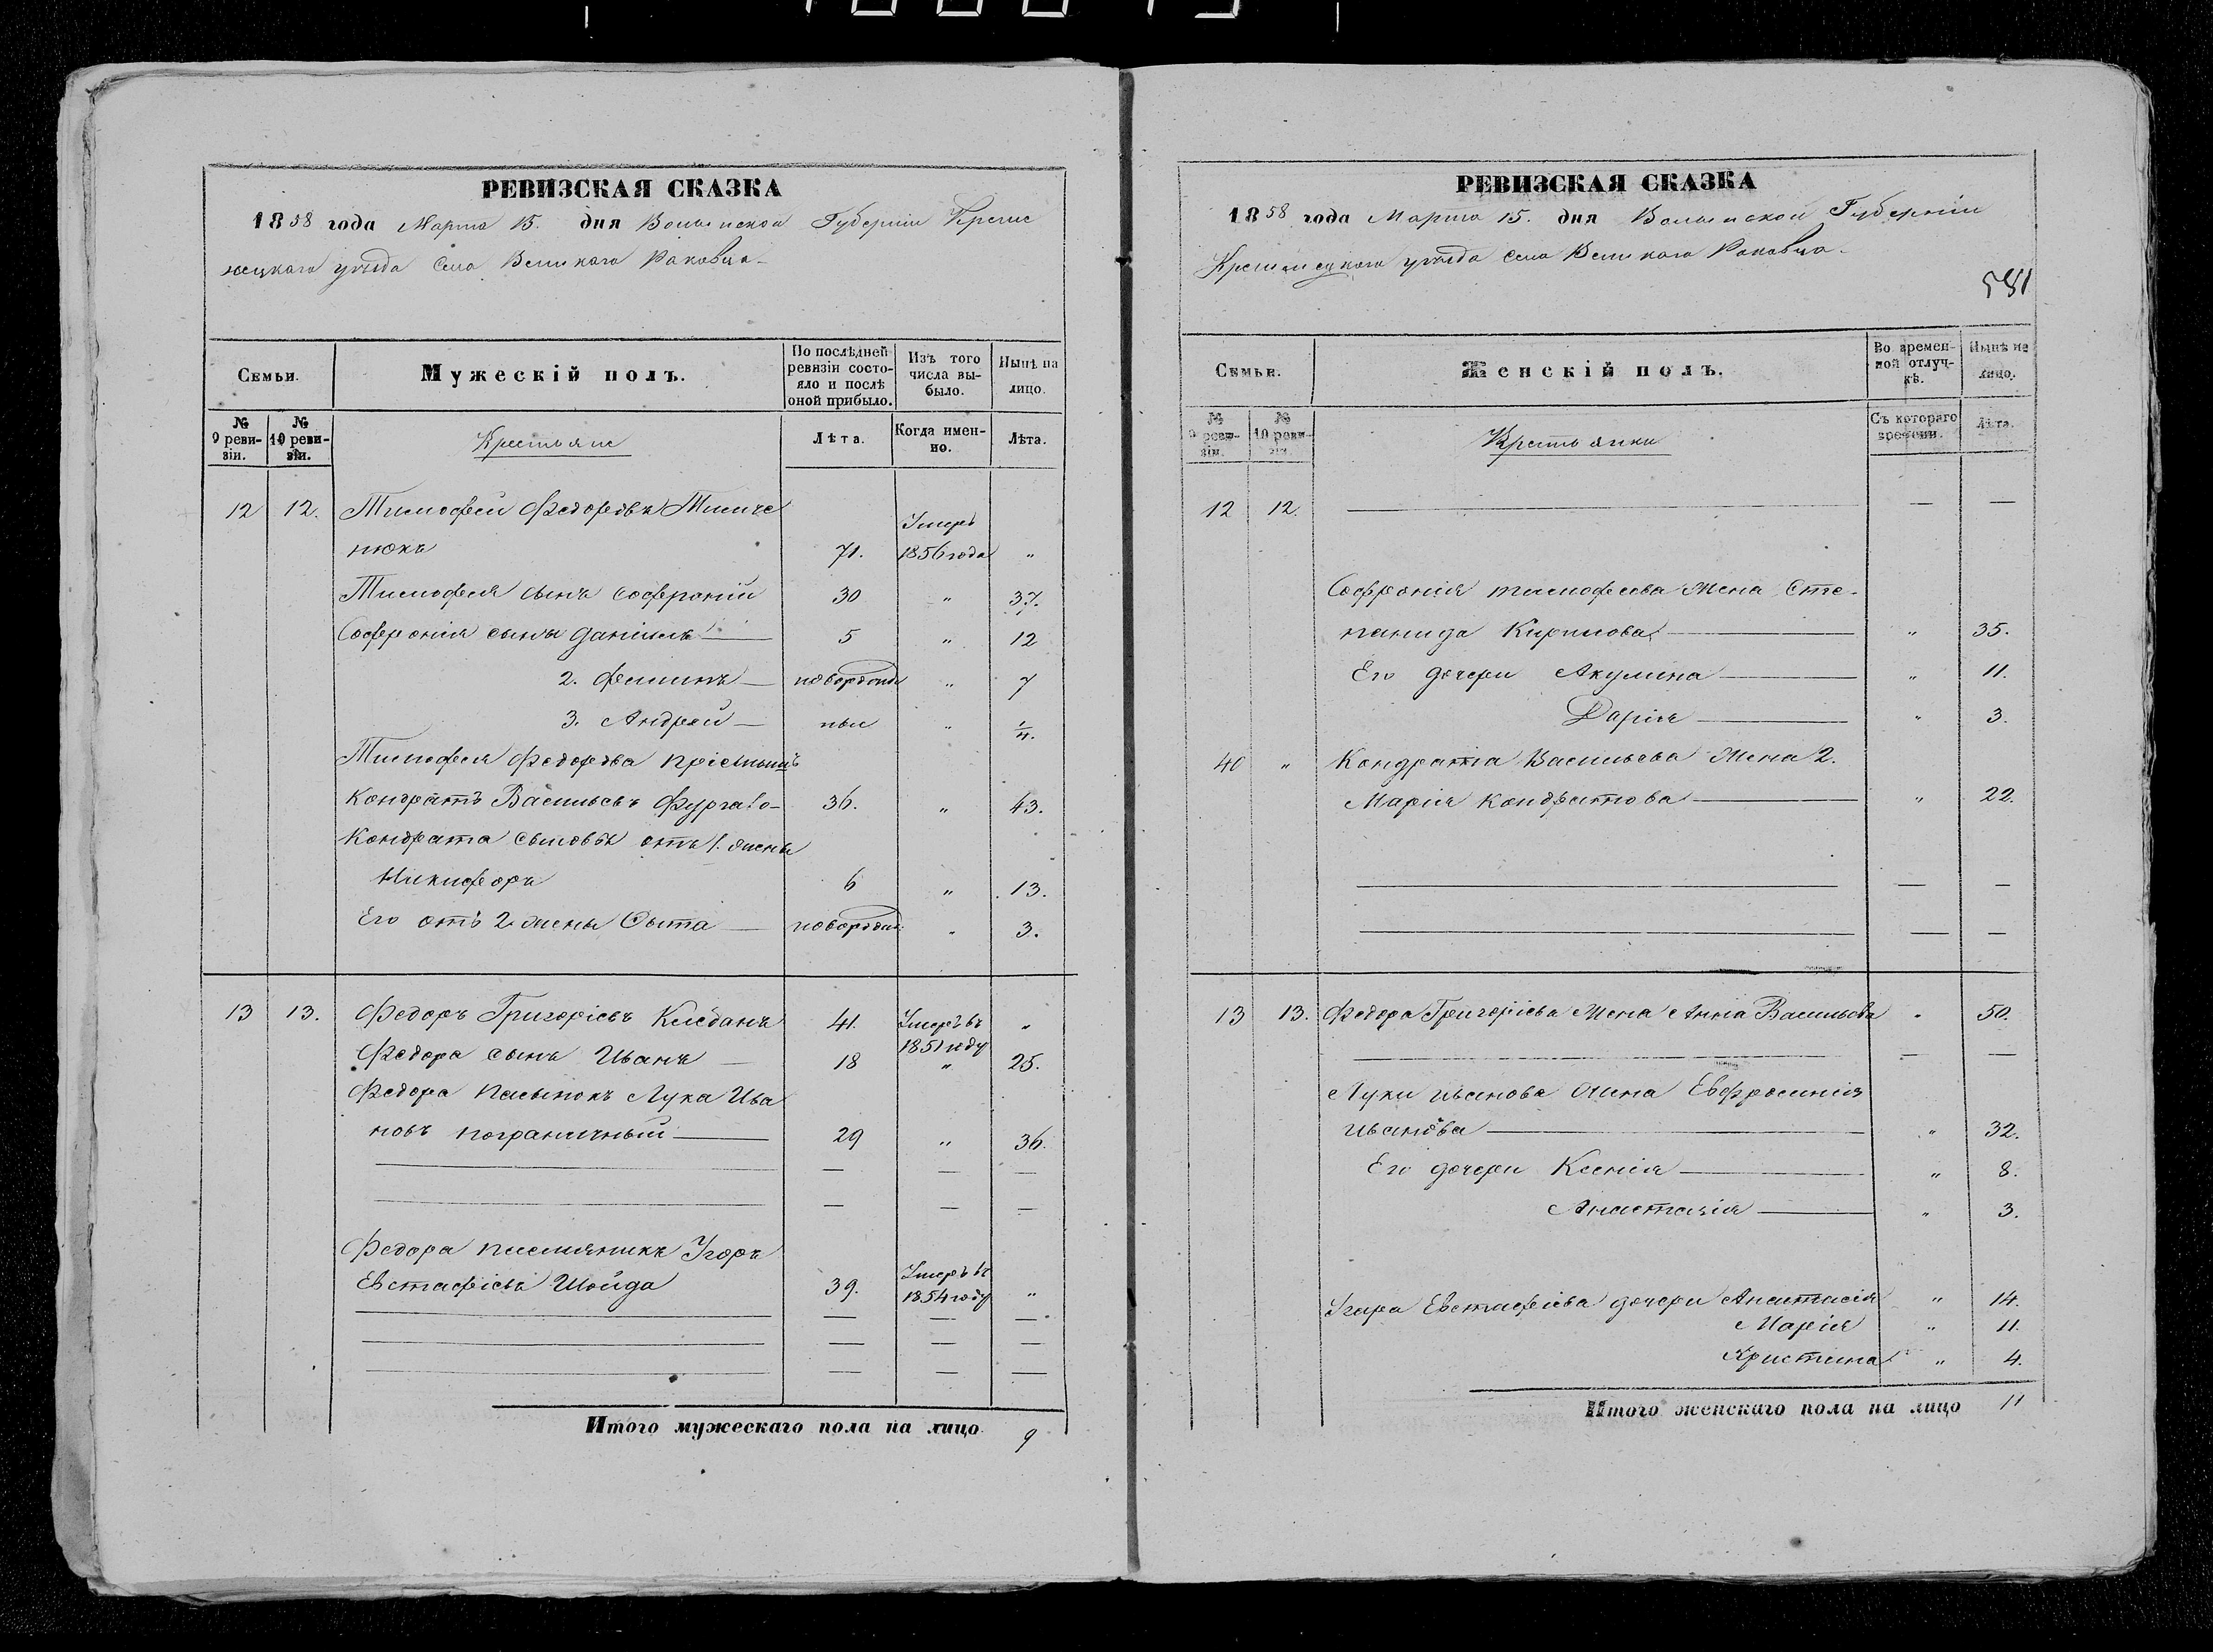 РЕВИЗСКАЯ СКАЗКА
1858 года Марта 15. дня Волынской Губерніи Креме
нецкаго уѣзда Села Великаго Раковца
Семьи.
Мужескій полъ.
По послѣдней ревизіи состояло и послѣ оной прибыло.
Изъ того числа выбыло.
Нынѣ на лицо.
№ 9 ревизіи.
№ 10 ревизіи.
Крестьяне
Лѣта.
Когда именно.
Лѣта.
12 12. Тимофей Федоровъ Тимче
нюкъ 71. Умеръ 1856 года "
Тимофея сынъ Софроній 30 " 37.
Софронія сыны Даніилъ 5 " 12
2. Филипъ новорожден " 7
3. Андрей ные " 1/4.
Тимофея Федорова пріемышъ
Кондратъ Васильевъ 36. " 43.
Кондрата сыновья отъ 1. жены
Никифоръ 6 " 13.
Его отъ 2 жены новорожд. " 3.
13 13. Федоръ Григоріевъ 41. Умеръ въ 1851 году "
Федора сынъ Иванъ 18 " 25.
Федора пасынокъ Лука Ива
новъ пограничный 29 " 36.
Федора племянникъ Згоръ
Евстафіевъ Шойда 39. Умеръ въ 1854 году "
Итого мужескаго пола на лицо 9
РЕВИЗСКАЯ СКАЗКА
1858 года Марта 15. дня Волынской Губерніи
Кременецкаго уѣзда села Великаго Раковца
581
Семьи.
Женскій полъ.
Во временной отлучкѣ.
Нынѣ на лицо.
№ 9 ревизіи.
№ 10 ревизіи.
Крестьянки
Съ котораго времени.
Лѣта.
12 12.
Софронія тимофеева жена Сте-
панида Кирилова " 35.
Его дочери Акулина " 11.
Дарія " 3.
40 " Кондратія Васильева жена 2.
Марія Кондратова " 22.
13 13. Федора Григоріева жена Анна Васильева " 50.
Луки иванова жена Евфросинія
иванова " 32.
Его дочери Ксенія " 8.
Анастазія " 3.
Згора Евстафіева дочери Анастасія " 14.
Марія " 11.
Христина " 4.
Итого женскаго пола на лицо 11